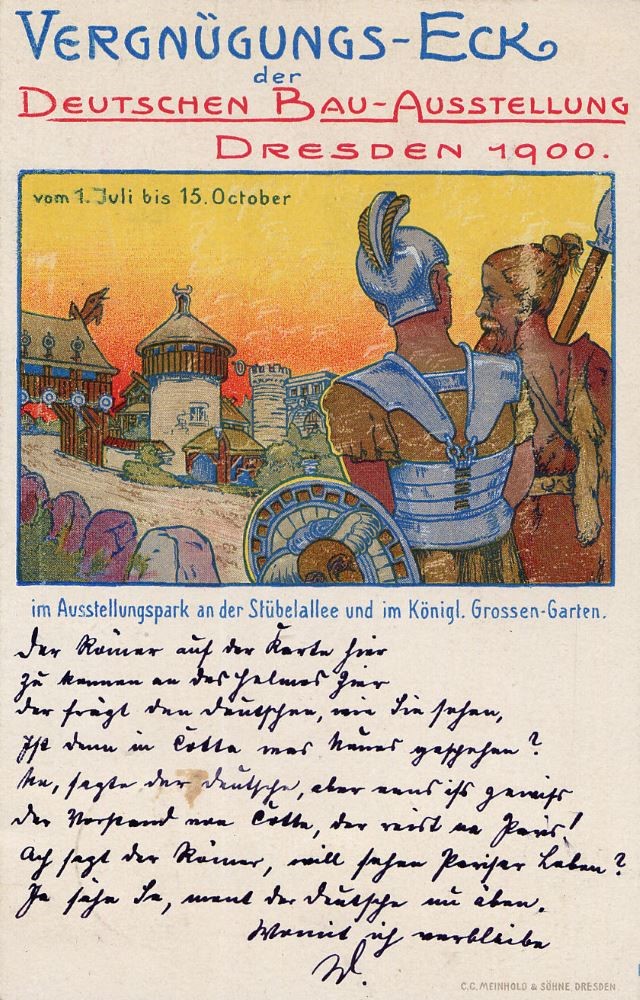 VERGNÜGUNGS-ECK
der
DEUTSCHEN BAU-AUSSTELLUNG
DRESDEN 1900.
vom 1. Juli bis 15. October
im Ausstellungspark an der Stübelallee und im Königl. Grossen-Garten.
Der Römer auf der Karte hier
zu kennen an des Helmes Zier
der frägt den Deutschen, wie Sie sehen,
Ist denn in Cotta was Neues geschehen?
Ne, sagte der Deutsche, aber eens iss gewiss
der Vorstand von Cotta, der reist na Paris!
Ach sagt der Römer, will sehen Pariser Leben?
Ja sähn Se, meent der Deutsche nu äben.
Womit ich verbleibe
W.
C.C. MEINHOLD & SÖHNE, DRESDEN.